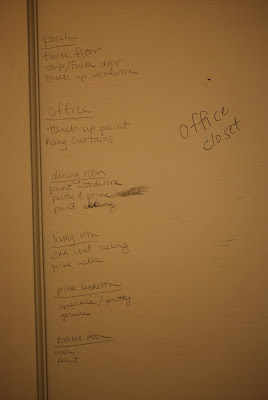 porch
finish floor
strip/finish door
touch up woodwork
office
touch up paint
hang curtains
dining room
paint woodwork
putty & prime
paint ceiling
living room
2nd coat ceiling
prime walls
pink bedroom
spackle / putty
prime
room
paint
Office
closet